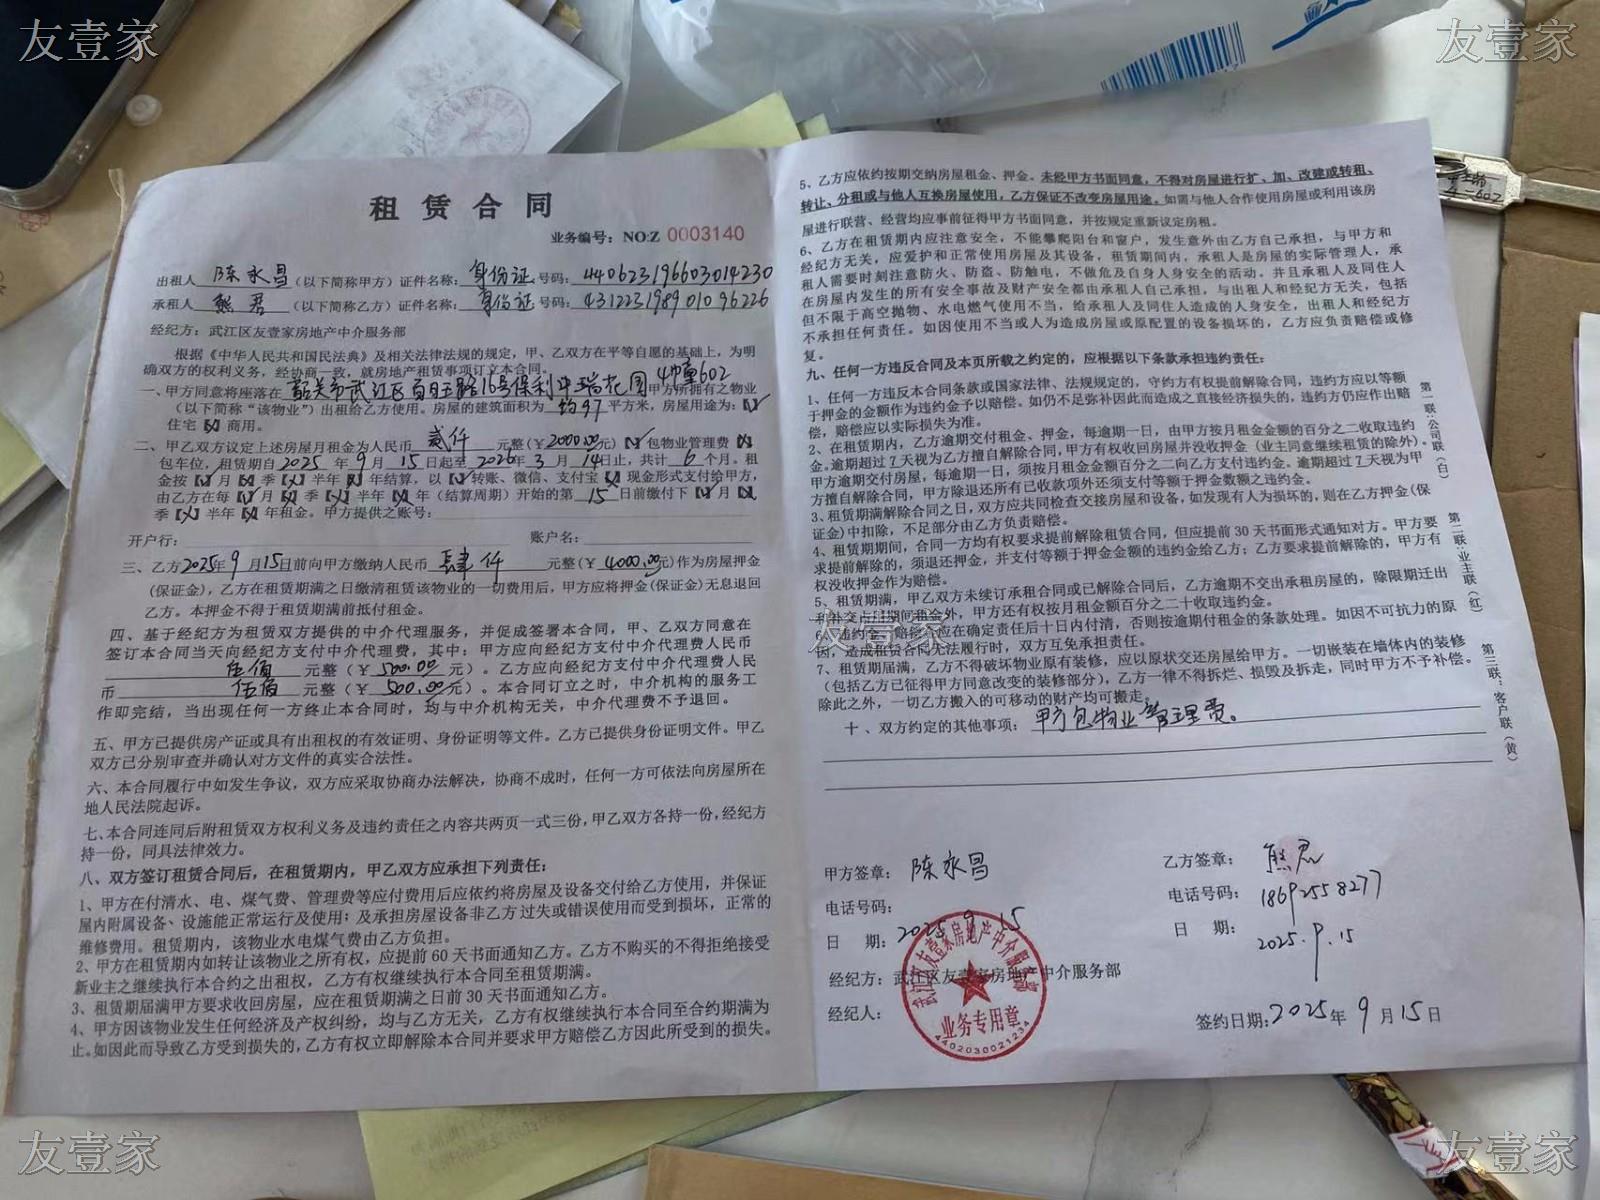 友壹家
友壹家
租赁合同
业务编号：NO:Z 0003140
出租人 陈永昌 （以下简称甲方）证件名称：身份证 号码：440623196603014230
承租人 熊君 （以下简称乙方）证件名称：身份证 号码：431223198901096226
经纪方：武江区友壹家房地产中介服务部
根据《中华人民共和国民法典》及相关法律法规的规定，甲、乙双方在平等自愿的基础上，为明
确双方的权利义务，经协商一致，就房地产租赁事项订立本合同。
一、甲方同意将座落在 韶关市武江区百旺路16号保利中瑞花园4幢602 甲方所拥有之物业
（以下简称“该物业”）出租给乙方使用。房屋的建筑面积为 约97 平方米，房屋用途为：【✓】
住宅【✗】商用。
二、甲乙双方议定上述房屋月租金为人民币 贰仟 元整（￥2000.00元）【✓】包物业管理费【✗】
包车位，租赁期自2025 年 9 月 15 日起至 2026年 3 月 14日止，共计 6 个月。租
金按【✓】月【✗】季【✗】半年【✗】年结算，以【✓】转账、微信、支付宝【✗】现金形式支付给甲方，
由乙方在每【✓】月【✗】季【✗】半年【✗】年（结算周期）开始的第 15 日前缴付下【✓】月【✗】
季【✗】半年【✗】年租金。甲方提供之账号：
开户行： 账户名：
三、乙方2025年9月15日前向甲方缴纳人民币 肆仟 元整（￥4000.00元）作为房屋押金
（保证金），乙方在租赁期满之日缴清租赁该物业的一切费用后，甲方应将押金（保证金）无息退回
乙方。本押金不得于租赁期满前抵付租金。
四、基于经纪方为租赁双方提供的中介代理服务，并促成签署本合同，甲、乙双方同意在
签订本合同当天向经纪方支付中介代理费，其中：甲方应向经纪方支付中介代理费人民币
伍佰 元整（￥500.00 元）。乙方应向经纪方支付中介代理费人民
币 伍佰 元整（￥500.00元）。本合同订立之时，中介机构的服务工
作即完结，当出现任何一方终止本合同时，均与中介机构无关，中介代理费不予退回。
五、甲方已提供房产证或具有出租权的有效证明、身份证明等文件。乙方已提供身份证明文件。甲乙
双方已分别审查并确认对方文件的真实合法性。
六、本合同履行中如发生争议，双方应采取协商办法解决，协商不成时，任何一方可依法向房屋所在
地人民法院起诉。
七、本合同连同后附租赁双方权利义务及违约责任之内容共两页一式三份，甲乙双方各持一份，经纪方
持一份，同具法律效力。
八、双方签订租赁合同后，在租赁期内，甲乙双方应承担下列责任：
1、甲方在付清水、电、煤气费、管理费等应付费用后应依约将房屋及设备交付给乙方使用，并保证
屋内附属设备、设施能正常运行及使用；及承担房屋设备非乙方过失或错误使用而受到损坏，正常的
维修费用。租赁期内，该物业水电煤气费由乙方负担。
2、甲方在租赁期内如转让该物业之所有权，应提前60天书面通知乙方。乙方不购买的不得拒绝接受
新业主之继续执行本合约之出租权，乙方有权继续执行本合同至租赁期满。
3、租赁期届满甲方要求收回房屋，应在租赁期满之日前30天书面通知乙方。
4、甲方因该物业发生任何经济及产权纠纷，均与乙方无关，乙方有权继续执行本合同至合约期满为
止。如因此而导致乙方受到损失的，乙方有权立即解除本合同并要求甲方赔偿乙方因此所受到的损失。
5、乙方应依约按期交纳房屋租金、押金。未经甲方书面同意，不得对房屋进行扩、加、改建或转租、
转让、分租或与他人互换房屋使用，乙方保证不改变房屋用途。如需与他人合作使用房屋或利用该房
屋进行联营、经营均应事前征得甲方书面同意，并按规定重新议定房租。
6、乙方在租赁期内应注意安全，不能攀爬阳台和窗户，发生意外由乙方自己承担，与甲方和
经纪方无关，应爱护和正常使用房屋及其设备，租赁期间内，承租人是房屋的实际管理人，承
租人需要时刻注意防火、防盗、防触电，不做危及自身人身安全的活动。并且承租人及同住人
在房屋内发生的所有安全事故及财产安全都由承租人自己承担，与出租人和经纪方无关，包括
但不限于高空抛物、水电燃气使用不当，给承租人及同住人造成的人身安全，出租人和经纪方
不承担任何责任。如因使用不当或人为造成房屋或原配置的设备损坏的，乙方应负责赔偿或修
复。
九、任何一方违反合同及本页所载之约定的，应根据以下条款承担违约责任：
1、任何一方违反本合同条款或国家法律、法规规定的，守约方有权提前解除合同，违约方应以等额
于押金的金额作为违约金予以赔偿。如仍不足弥补因此而造成之直接经济损失的，违约方仍应作出赔
偿，赔偿应以实际损失为准。
2、在租赁期内，乙方逾期交付租金、押金，每逾期一日，由甲方按月租金金额的百分之二收取违约
金。逾期超过7天视为乙方擅自解除合同，甲方有权收回房屋并没收押金（业主同意继续租赁的除外）。
甲方逾期交付房屋，每逾期一日，须按月租金金额百分之二向乙方支付违约金。逾期超过7天视为甲
方擅自解除合同，甲方除退还所有已收款项外还须支付等额于押金数额之违约金。
3、租赁期满解除合同之日，双方应共同检查交接房屋和设备，如发现有人为损坏的，则在乙方押金（保
证金）中扣除，不足部分由乙方负责赔偿。
4、租赁期期间，合同一方均有权要求提前解除租赁合同，但应提前30天书面形式通知对方。甲方要
求提前解除的，须退还押金，并支付等额于押金金额的违约金给乙方；乙方要求提前解除的，甲方有
权没收押金作为赔偿。
5、租赁期满，甲乙双方未续订承租合同或已解除合同后，乙方逾期不交出承租房屋的，除限期迁出
和补交占用期间租金外，甲方还有权按月租金额百分之二十收取违约金。
6、违约金、赔偿金应在确定责任后十日内付清，否则按逾期付租金的条款处理。如因不可抗力的原
因，造成租赁合同无法履行时，双方互免承担责任。
7、租赁期届满，乙方不得破坏物业原有装修，应以原状交还房屋给甲方。一切嵌装在墙体内的装修
（包括乙方已征得甲方同意改变的装修部分），乙方一律不得拆烂、损毁及拆走，同时甲方不予补偿。
除此之外，一切乙方搬入的可移动的财产均可搬走。
十、双方约定的其他事项：甲方包物业管理费。
第一联：公司联（白）
第二联：业主联（红）
第三联：客户联（黄）
友壹家
甲方签章：陈永昌
电话号码：
日 期：2025.9.15
经纪方：武江区友壹家房地产中介服务部
经纪人：
乙方签章：熊君
电话号码：18692558277
日 期：2025.9.15
签约日期：2025年9月15日
武江区友壹家房地产中介服务部
业务专用章
4402030021234
友壹家
友壹家